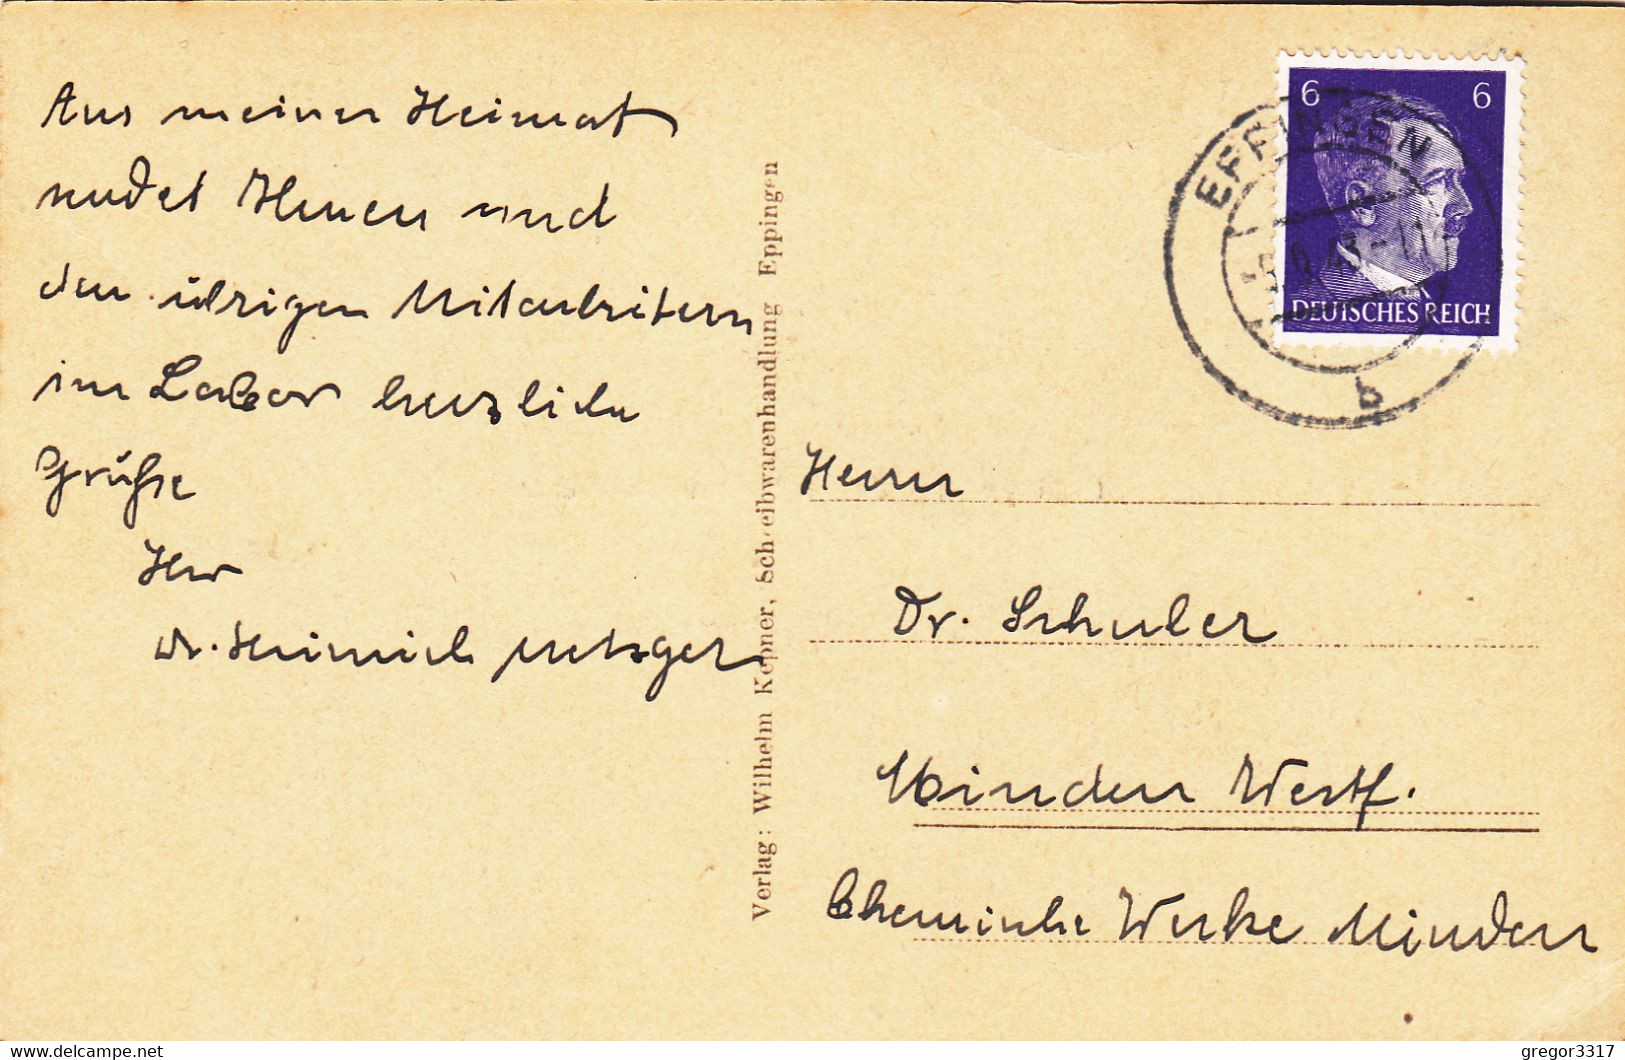 Aus meiner Heimat
sendet Ihnen und
den übrigen Mitarbeitern
im Labor herzliche
Grüße
Ihr
Dr. Heinrich Metzger
Verlag: Wilhelm Kepner, Schreibwarenhandlung Eppingen
6 6
DEUTSCHES REICH
EPPINGEN
43
b
Herrn
Dr. Schuler
Minden Westf.
Chemische Werke Minden
delcampe.net
gregor3317